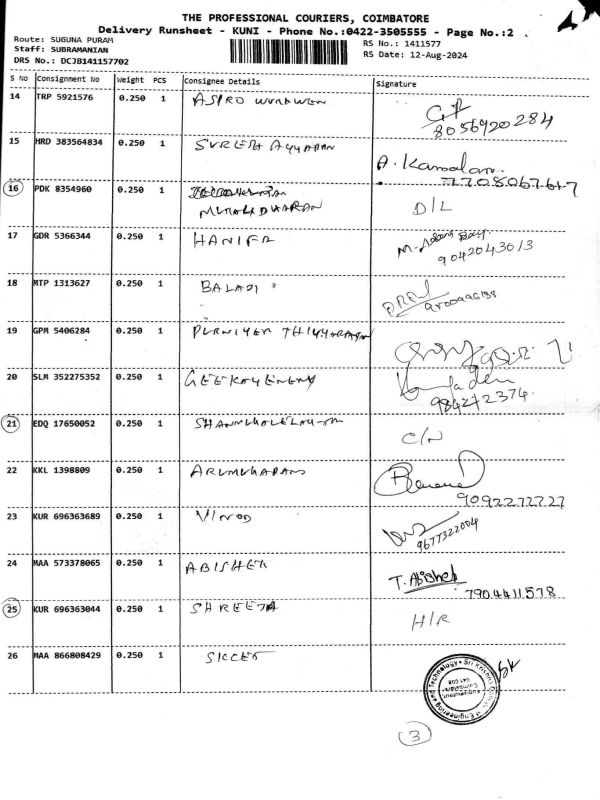 THE PROFESSIONAL COURIERS, COIMBATORE
Delivery Runsheet - KUNI - Phone No.:0422-3505555 - Page No.:2
Route: SUGUNA PURAM
RS No.: 1411577
Staff: SUBRAMANIAN
RS Date: 12-Aug-2024
DRS No.: DCJB141157702
S No Consignment No Weight PCS Consignee Details Signature
14 TRP 5921576 0.250 1
8056920284
15 HRD 383564834 0.250 1 SURESH AYYAPAN
A. Kamalam
16 PDK 8354960 0.250 1
MURALIDHARAN D/L
17 GDR 5366344 0.250 1 HANIFA
9042043013
18 MTP 1313627 0.250 1 BALAJI
19 GPM 5406284 0.250 1
20 SLM 352275352 0.250 1 GEEKAYENERY
9842122374
21 EDQ 17650052 0.250 1
C/N
22 KKL 1398809 0.250 1
9092272727
23 KUR 696363689 0.250 1 VINOD
9677322004
24 MAA 573378065 0.250 1 ABISHEK
T. Abishek
7904411578
25 KUR 696363044 0.250 1 SHREEJA
H/R
26 MAA 866808429 0.250 1 SKCET
3